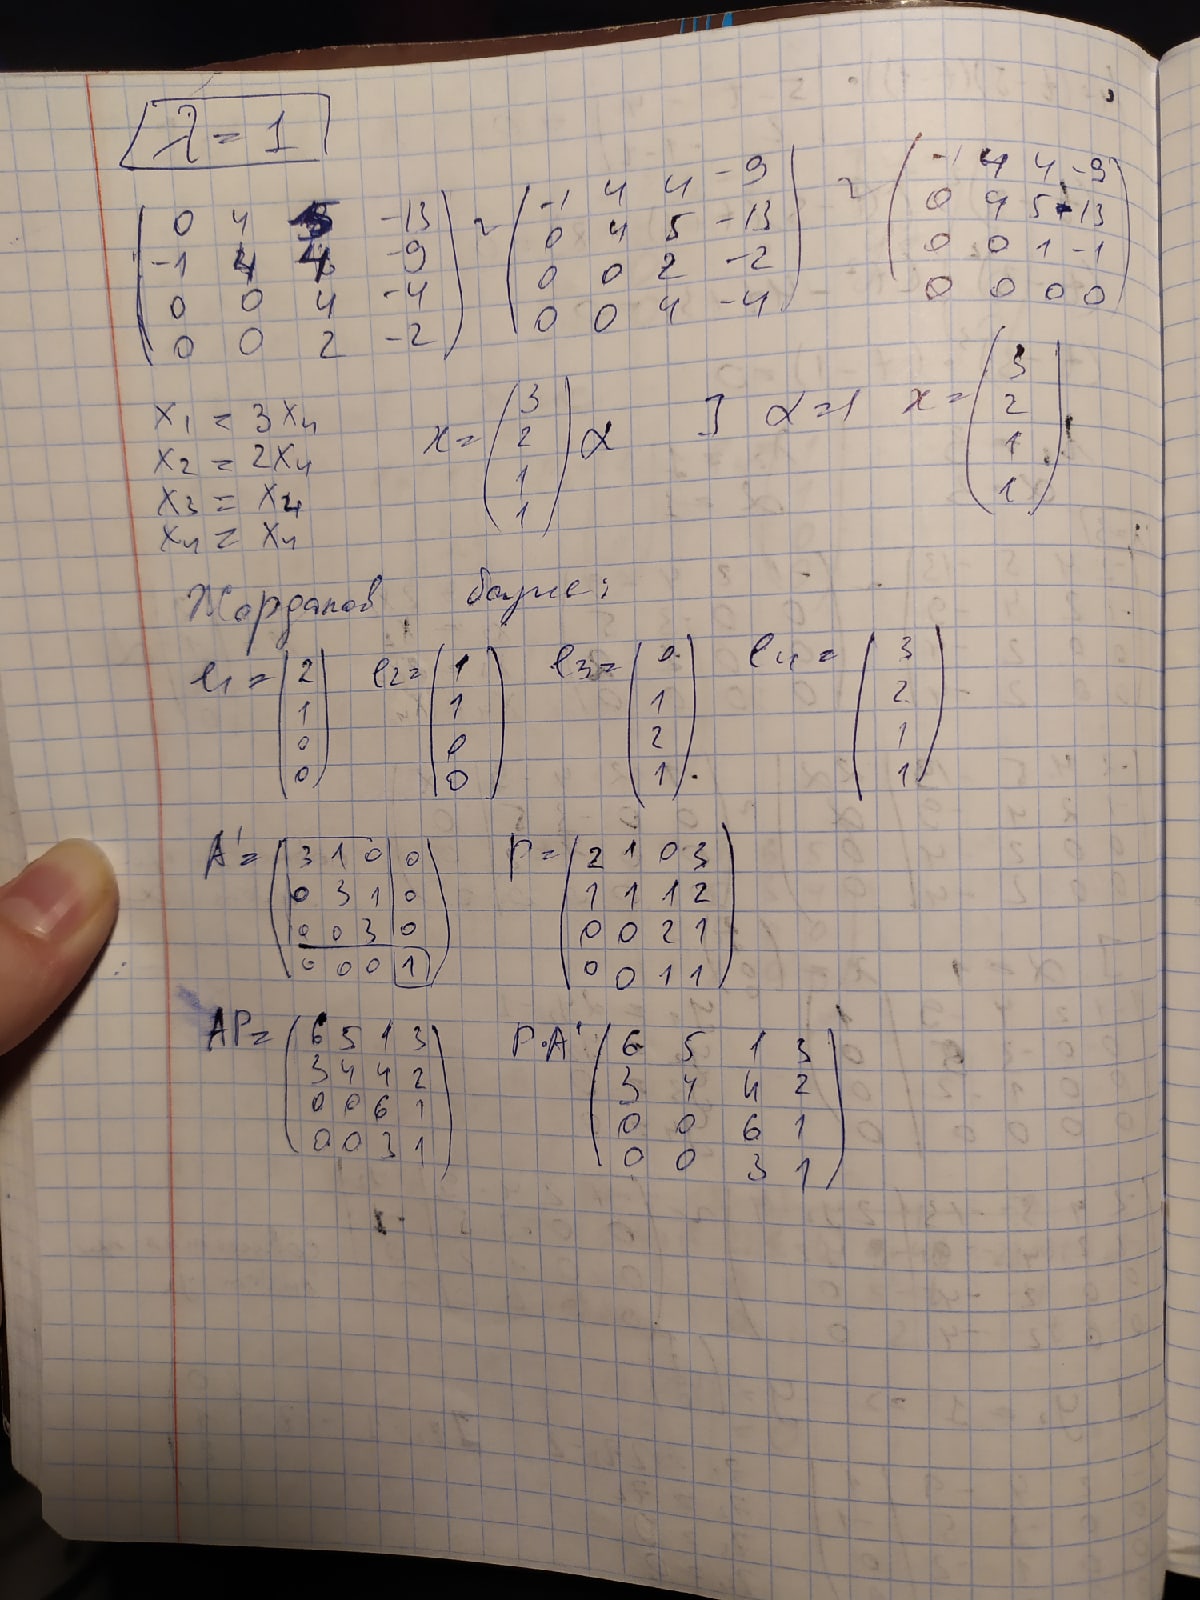 λ = 1
( 0 4 5 -13 ; -1 4 4 -9 ; 0 0 4 -4 ; 0 0 2 -2 ) ~ ( -1 4 4 -9 ; 0 4 5 -13 ; 0 0 2 -2 ; 0 0 4 -4 ) ~ ( -1 4 4 -9 ; 0 4 5 -13 ; 0 0 1 -1 ; 0 0 0 0 )
x₁ = 3x₄
x₂ = 2x₄
x₃ = x₄
x₄ = x₄
x = ( 3 ; 2 ; 1 ; 1 ) α ] α = 1 x = ( 3 ; 2 ; 1 ; 1 )
Жорданов базис:
e₁ = ( 2 ; 1 ; 0 ; 0 ) e₂ = ( 1 ; 1 ; 0 ; 0 ) e₃ = ( 0 ; 1 ; 2 ; 1 ) e₄ = ( 3 ; 2 ; 1 ; 1 )
A' = ( 3 1 0 0 ; 0 3 1 0 ; 0 0 3 0 ; 0 0 0 1 ) P = ( 2 1 0 3 ; 1 1 1 2 ; 0 0 2 1 ; 0 0 1 1 )
AP = ( 6 5 1 3 ; 3 4 4 2 ; 0 0 6 1 ; 0 0 3 1 ) P·A' ( 6 5 1 3 ; 3 4 4 2 ; 0 0 6 1 ; 0 0 3 1 )